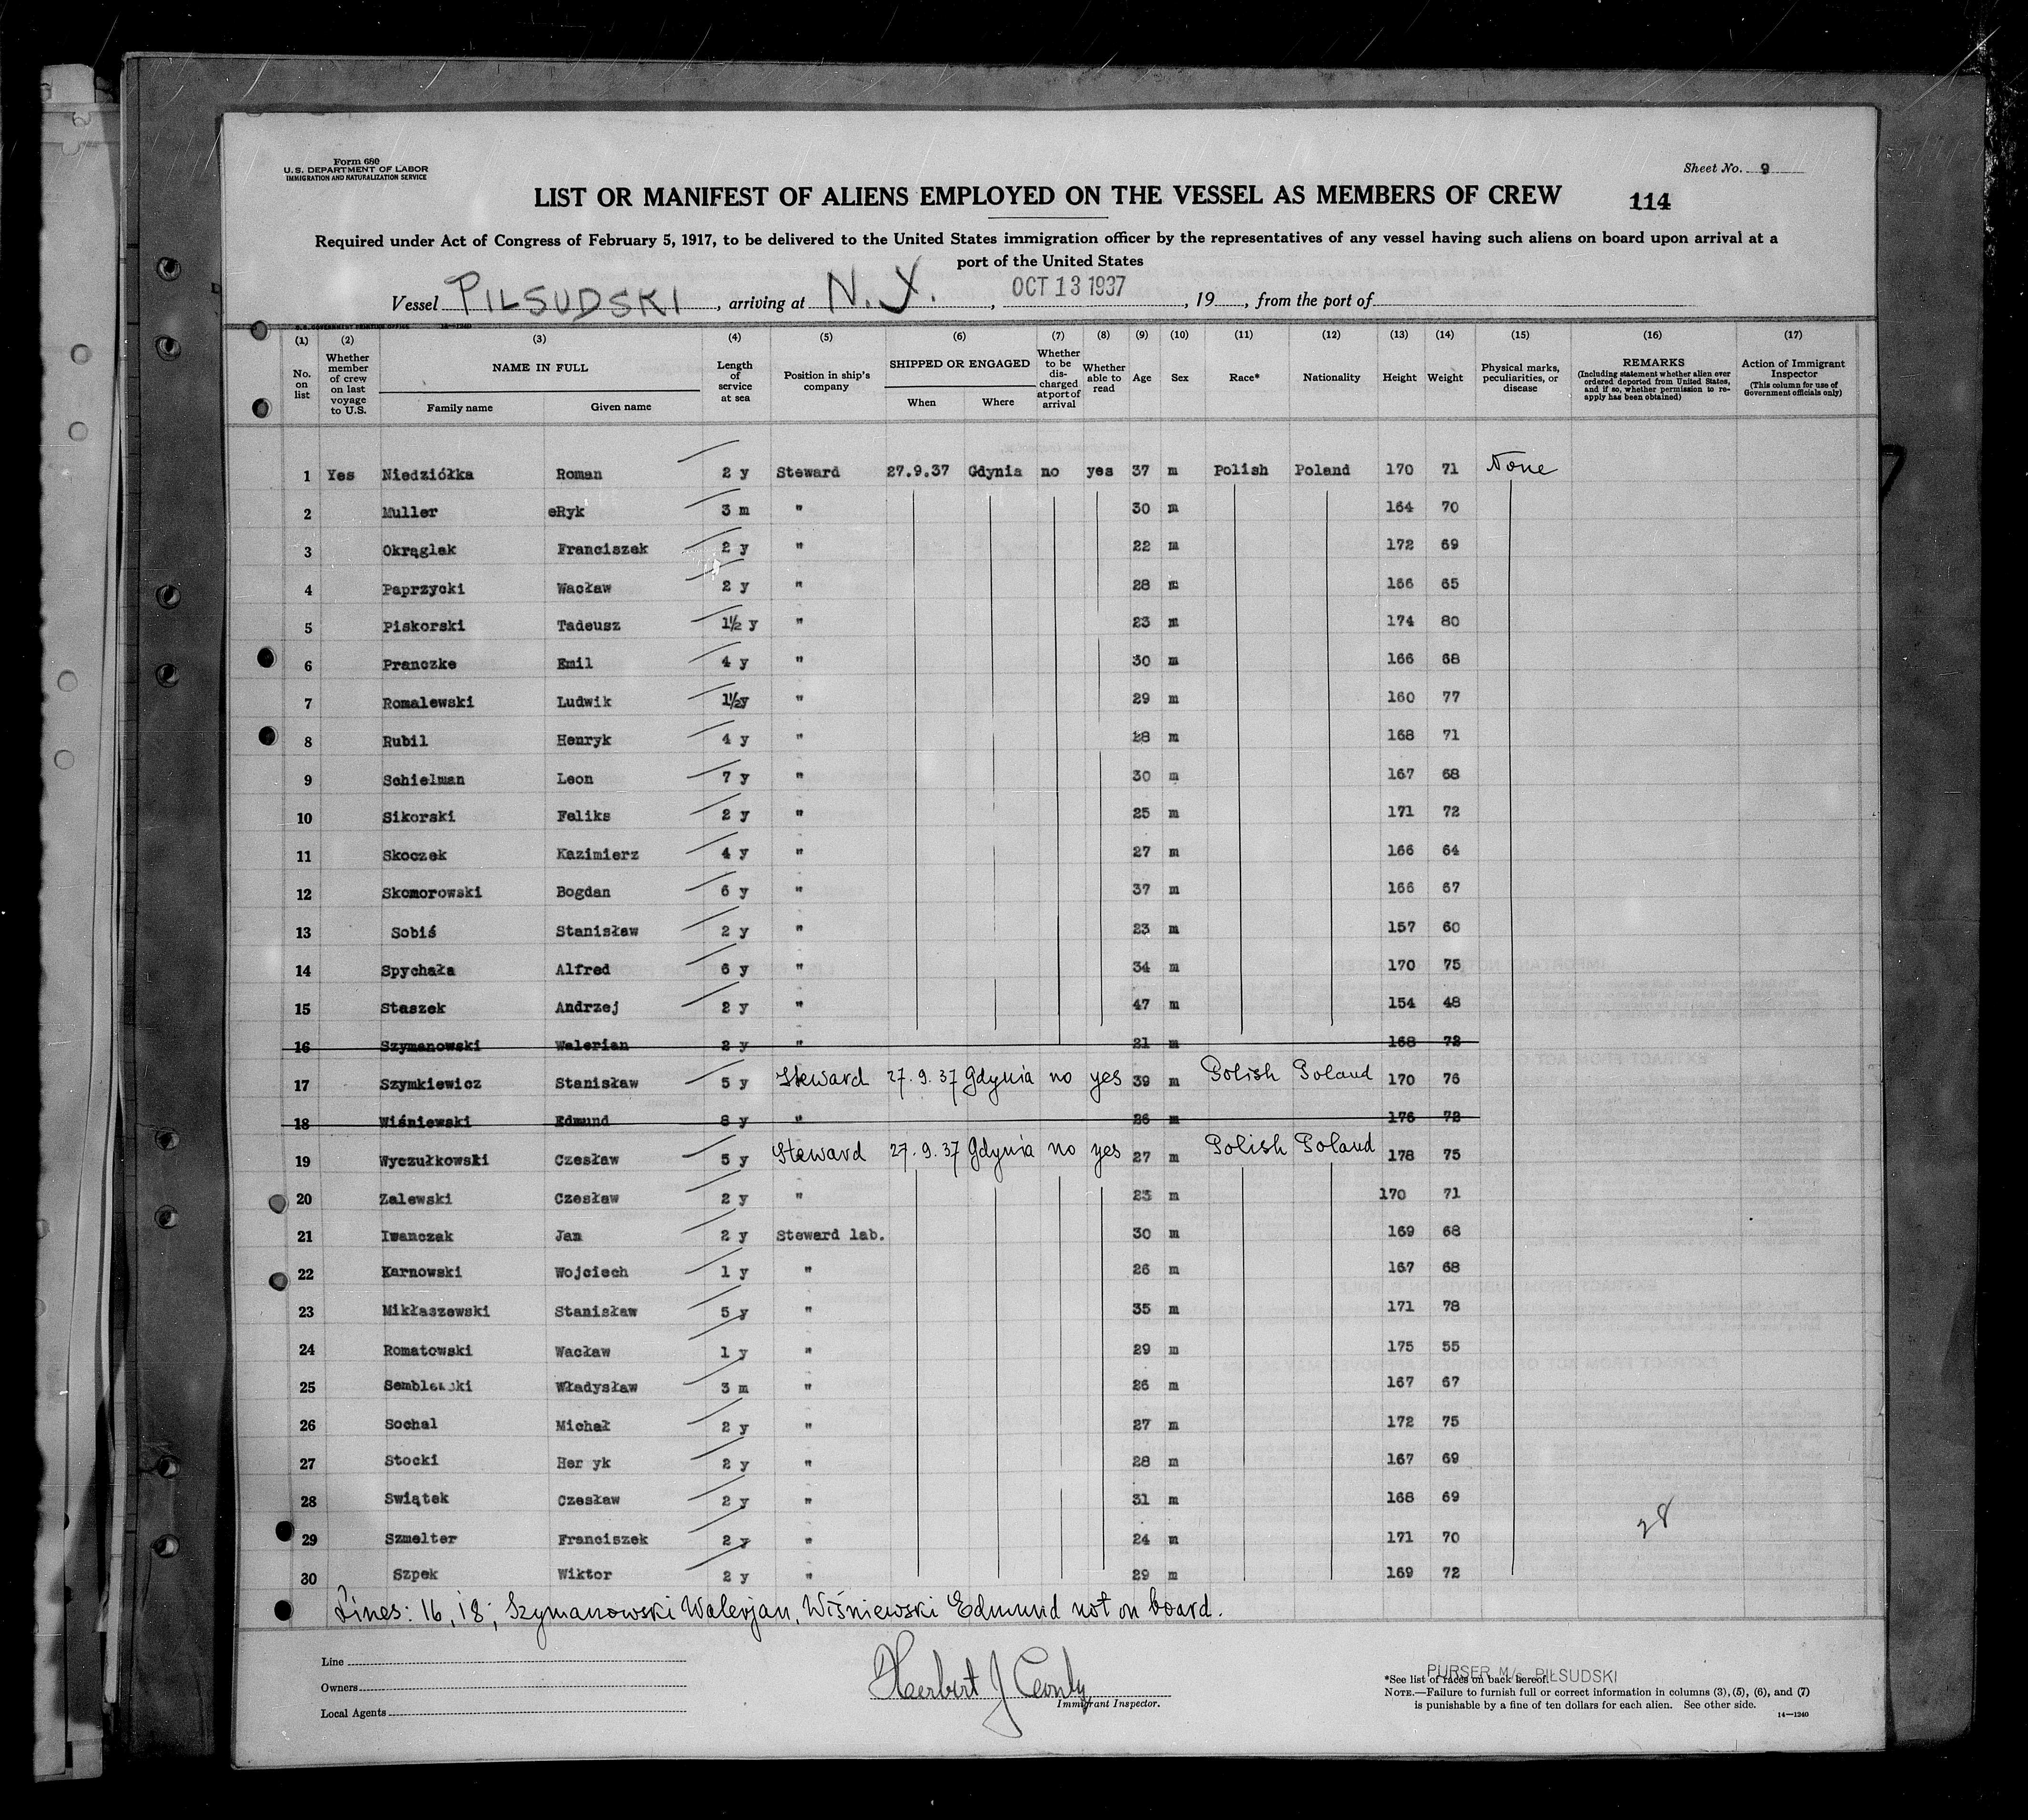 Form 680
U.S. DEPARTMENT OF LABOR
IMMIGRATION AND NATURALIZATION SERVICE
Sheet No. 9
LIST OR MANIFEST OF ALIENS EMPLOYED ON THE VESSEL AS MEMBERS OF CREW
114
Required under Act of Congress of February 5, 1917, to be delivered to the United States immigration officer by the representatives of any vessel having such aliens on board upon arrival at a
port of the United States
Vessel PILSUDSKI, arriving at N.Y., OCT 13 1937, 19 , from the port of
U.S. GOVERNMENT PRINTING OFFICE 14—1240
(1) (2) (3) (4) (5) (6) (7) (8) (9) (10) (11) (12) (13) (14) (15) (16) (17)
No. on list
Whether member of crew on last voyage to U.S.
NAME IN FULL
Family name
Given name
Length of service at sea
Position in ship's company
SHIPPED OR ENGAGED
When
Where
Whether to be discharged at port of arrival
Whether able to read
Age
Sex
Race*
Nationality
Height
Weight
Physical marks, peculiarities, or disease
REMARKS
(Including statement whether alien ever ordered deported from United States, and if so, whether permission to reapply has been obtained)
Action of Immigrant Inspector
(This column for use of Government officials only)
1 Yes Niedziółka Roman 2 y Steward 27.9.37 Gdynia no yes 37 m Polish Poland 170 71 None
2 Muller eRyk 3 m " 30 m 164 70
3 Okrąglak Franciszek 2 y " 22 m 172 69
4 Paprzycki Wacław 2 y " 28 m 166 65
5 Piskorski Tadeusz 1½ y " 23 m 174 80
6 Pranczke Emil 4 y " 30 m 166 68
7 Romalewski Ludwik 1½y " 29 m 160 77
8 Rubil Henryk 4 y " 28 m 168 71
9 Schielman Leon 7 y " 30 m 167 68
10 Sikorski Feliks 2 y " 25 m 171 72
11 Skoczek Kazimierz 4 y " 27 m 166 64
12 Skomorowski Bogdan 6 y " 37 m 166 67
13 Sobiś Stanisław 2 y " 23 m 157 60
14 Spychała Alfred 6 y " 34 m 170 75
15 Staszek Andrzej 2 y " 47 m 154 48
16 Szymanowski Walerian 2 y " 21 m 168 72
17 Szymkiewicz Stanisław 5 y Steward 27.9.37 Gdynia no yes 39 m Polish Poland 170 76
18 Wiśniewski Edmund 8 y " 26 m 176 72
19 Wyczułkowski Czesław 5 y Steward 27.9.37 Gdynia no yes 27 m Polish Poland 178 75
20 Zalewski Czesław 2 y " 23 m 170 71
21 Iwanczak Jan 2 y Steward lab. 30 m 169 68
22 Karnowski Wojciech 1 y " 26 m 167 68
23 Mikłaszewski Stanisław 5 y " 35 m 171 78
24 Romatowski Wacław 1 y " 29 m 175 55
25 Władysław 3 m " 26 m 167 67
26 Sochal Michał 2 y " 27 m 172 75
27 Stocki Her yk 2 y " 28 m 167 69
28 Swiątek Czesław 2 y " 31 m 168 69
29 Szmelter Franciszek 2 y " 24 m 171 70
30 Szpek Wiktor 2 y " 29 m 169 72
28
Lines: 16, 18; Szymanowski Walerjan, Wiśniewski Edmund not on board.
Line
Owners
Local Agents
Herbert J
Immigrant Inspector.
PURSER M/s PIŁSUDSKI
*See list of races on back hereof.
NOTE.—Failure to furnish full or correct information in columns (3), (5), (6), and (7)
is punishable by a fine of ten dollars for each alien. See other side.
14—1240